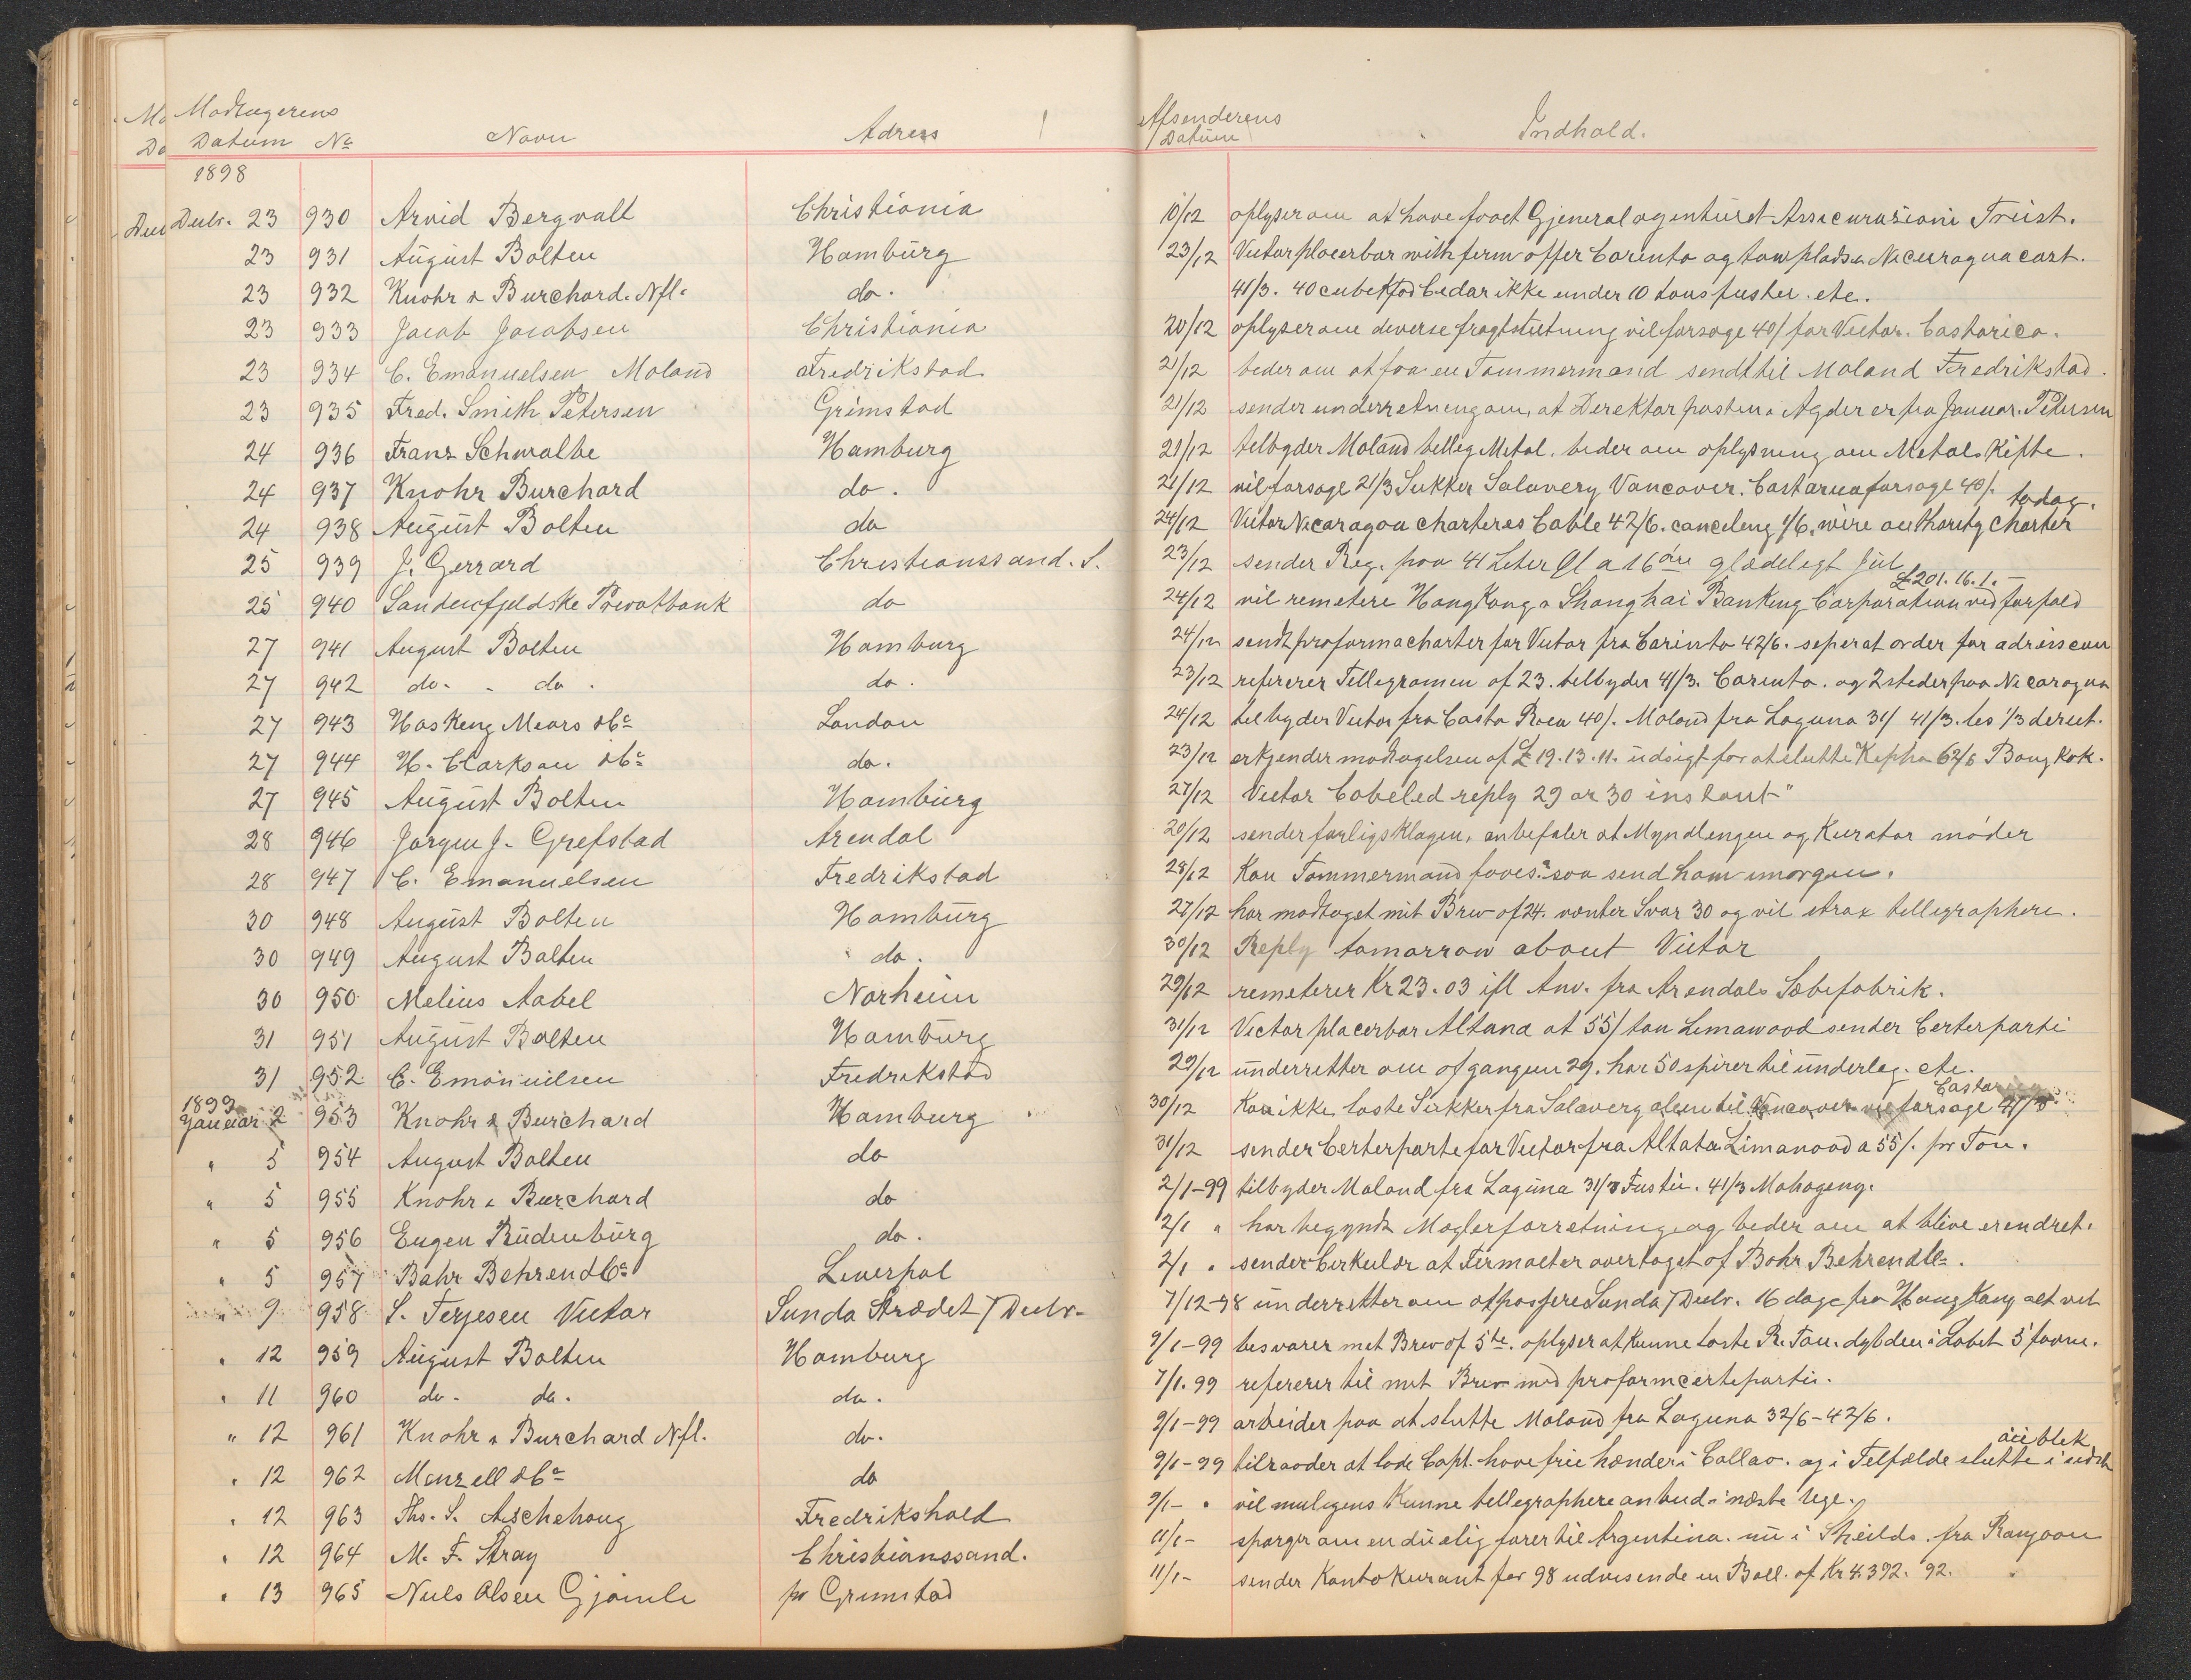 Modtagerens Afsenderens
Datum No Navn Adress Datum Indhold.
1898
Decbr. 23 930 Arvid Bergvall Christiania 10/12 oplyser om at have faaet Gjeneralagenturet Assicurasioni Triest.
23 931 August Bolten Hamburg 23/12 Victor placerbar with firm offer Corinto og to pladser Nicuragua cort.
23 932 Knohr & Burchard. Nfl. do. 41/3. 40 cubekfod Cedar ikke under 10 tons fustic. etc.
23 933 Jacob Jacobsen Christiania 20/12 oplyser om diverse fragtslutning vil forsøge 40/ for Victor. Costarica.
23 934 C. Emanuelsen Moland Fredrikstad 21/12 beder om at faa en Tømmermand sendt til Moland Fredrikstad.
23 935 Fred. Smith Petersen Grimstad 21/12 sender underretning om, at Direktør posten i Agder er fra Januar. Petersen
24 936 Franz Schwalbe Hamburg 21/12 tilbyder Moland billig Metal. beder om oplysning om Metals Kifte.
24 937 Knohr Burchard do. 21/12 vil forsøge 21/3 Sukker Salavery Vancover. Costarica forsøge 40/.
24 938 August Bolten do 24/12 Victor Nicaragoa charteres Cable 42/6. canceling 1/6. wire authority charter today.
25 939 J. Gerrard Christianssand. S. 23/12 sender Reg. paa 41 Liter Øl a 16 øre glædeligt Jul
25 940 Søndenfjeldske Privatbank do 24/12 vil remitere HongKong & Shanghai Banking Corporation ved forfald £ 201. 16. 1. -
27 941 August Bolten Hamburg 24/12 sendt proformacharter for Victor fra Corinto 42/6. seperat order for adrescom
27 942 do. - do. do. 23/12 refererer Tellegramen af 23. tilbyder 41/3. Corinto. og 2 steder paa Nicaragua
27 943 Hasking Mears & Co London 24/12 tilbyder Victor fra Costa Rica 40/. Moland fra Laguna 31/ 41/3. les 1/3 derect.
27 944 H. Clarkson & Co do. 23/12 erkjender modtagelsen af £ 19. 13. 11. udsigt for at slutte Kepha 62/6 Bangkok.
27 945 August Bolten Hamburg 27/12 Victor Cabeled reply 29 or 30 instant"
28 946 Jørgen J. Grefstad Arendal 20/12 sender forligsklagen, anbefaler at Myndlengen og Kurator møder
28 947 C. Emanuelsen Fredrikstad 28/12 Kan Tømmermand faaes? saa send ham imorgen.
30 948 August Bolten Hamburg 27/12 har modtaget mit Brev af 24. venter Svar 30 og vil strax tellegraphere.
30 949 August Bolten do. 30/12 Reply tomorrow about Victor
30 950 Melius Aabel Norheim 29/12 remeterer Kr 23.03 ifl Anv. fra Arendals Sæbefabrik.
31 951 August Bolten Hamburg 31/12 Victor placerbar Altana at 55/ ton Limawood sender Certerparti
31 952 C. Emanuilsen Fredrikstad 29/12 underretter om afgangen 29. har 50 spirer til underlag. etc.
1899
Januar 2 953 Knohr & Burchard Hamburg 30/12 Kan ikke laste Sukker fra Salavery alene til Vancover vil forsøge 41/3
" 5 954 August Bolten do 31/12 sender Certerparte for Victor fra Altata Limanood a 55/. pr Ton.
" 5 955 Knohr & Burchard do 2/1-99 tilbyder Moland fra Laguna 31/3 Fustic. 41/3 Mahogeny.
" 5 956 Eugen Rüdenburg do. 2/1 " har begyndt Mæglerforretning og beder om at blive erendret.
" 5 957 Bahr Behrend & Co Liverpol 2/1 " sender Cirkulær at Firmaet er overtaget af Bahr Behrend & Co.
" 9 958 S. Terjesen Victor Sunda Strædet 7 Decbr. 7/12-98 underretter om at passere Sunda 7 Decbr. 16 dage fra HongKong alt vel
" 12 959 August Bolten Hamburg 9/1-99 besvarer mit Brev af 5te. oplyser at kunne laste R. Ton. dybden i Løbet 5 favne.
" 11 960 do. do. do. 7/1.99 refererer til mit Brev med proformcerteparti.
" 12 961 Knohr & Burchard Nfl. do. 9/1-99 arbeider paa at slutte Moland fra Laguna 32/6-42/6.
" 12 962 Menzell & Co do 9/1-99 tilraader at lade Capt. have frie hænder i Callao. og i Tilfælde slutte i
" 12 963 Ths. S. Aschehoug Fredrikshald 9/1- " vil muligens kunne tellegraphere anbud i næste Uge.
" 12 964 M. F. Stray Christianssand. 11/1- spørger om en duelig fører til Argentina. nu i Sheilds. fra Rangoon
" 13 965 Niels Olsen Gjømle pr Grimstad 11/1- sender Kontokurant for 98 udvisende en Ball. af Kr 4.392. 92.